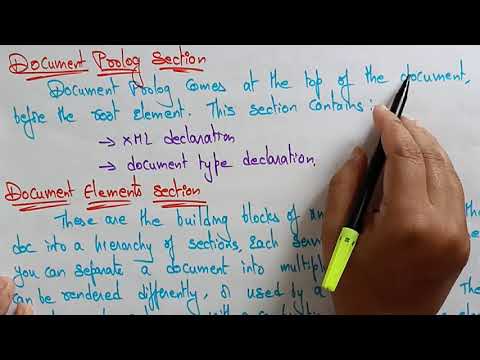 Document Prolog Section
Document Prolog Comes at the top of the document,
before the root element. This section contains:
→ XML declaration
→ document type declaration.
Document Elements Section
These are the building blocks of
doc into a hierarchy of sections, each
you can separate a document into
can be rendered differently, or used by a